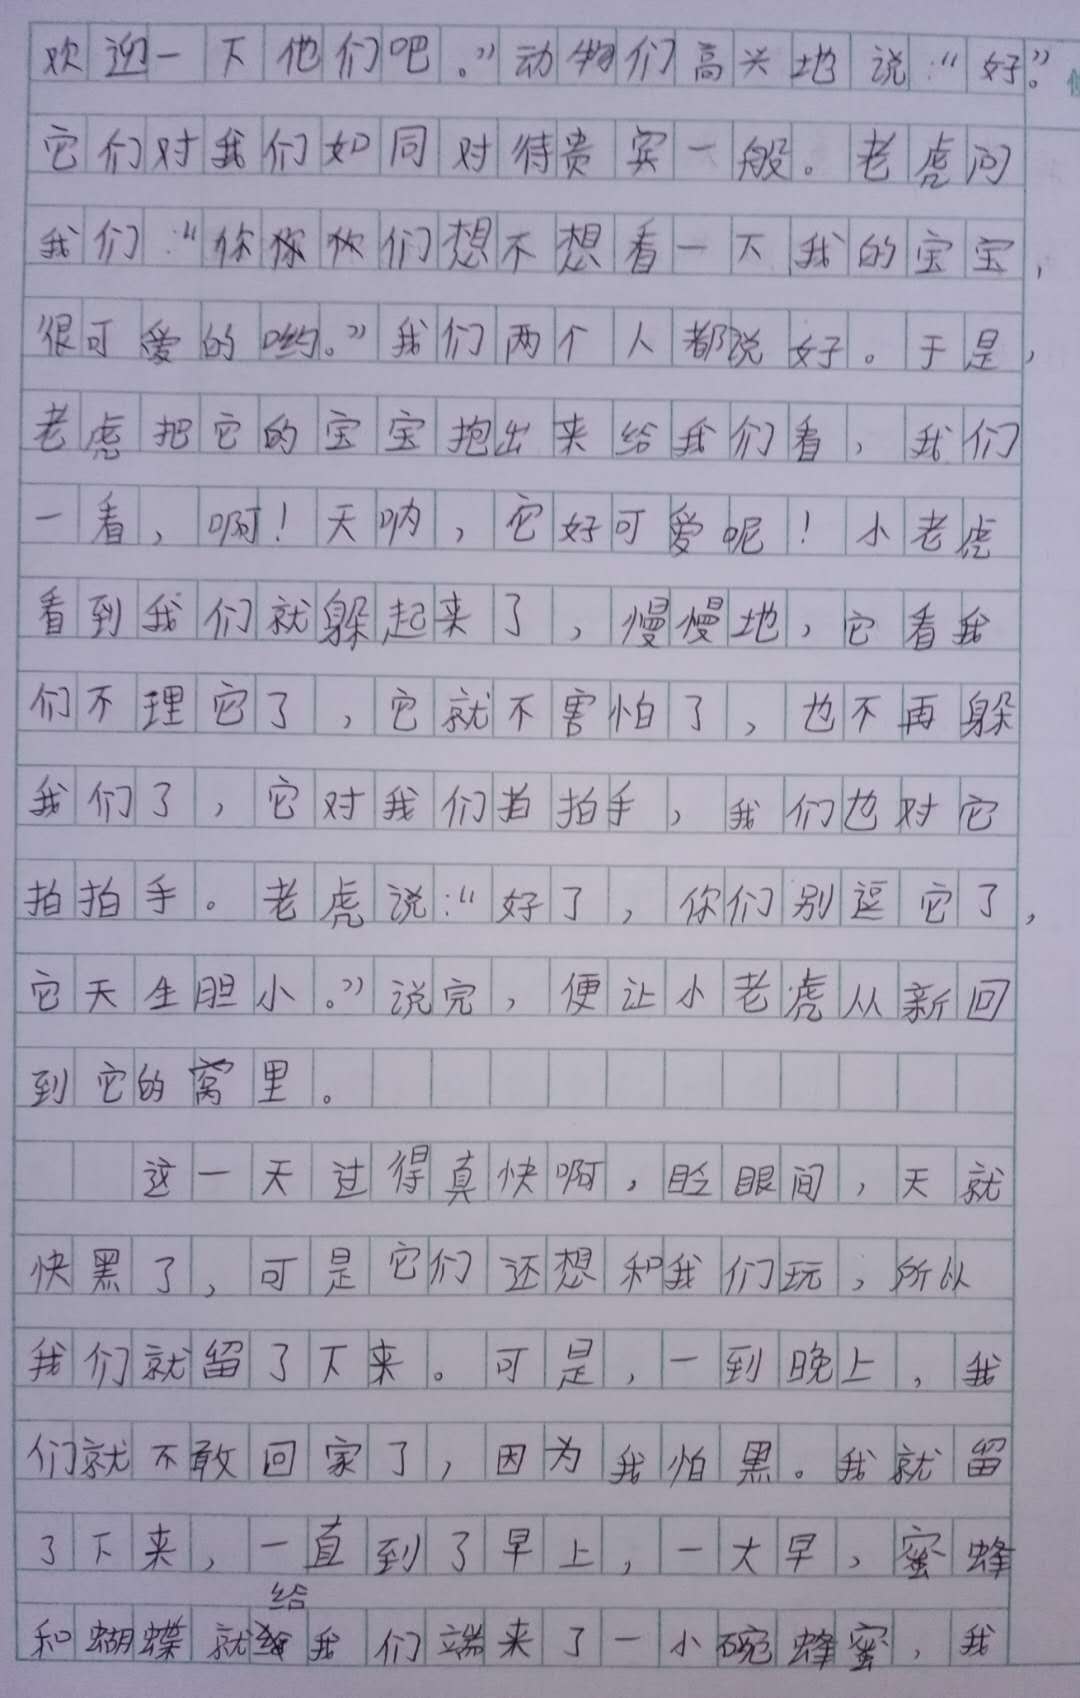 欢迎一下他们吧。”动物们高兴地说：“好。”
它们对我们如同对待贵宾一般。老虎问
我们：“你你你们想不想看一下我的宝宝，
很可爱的哟。”我们两个人都说好。于是，
老虎把它的宝宝抱出来给我们看，我们
一看，啊！天呐，它好可爱呢！小老虎
看到我们就躲起来了，慢慢地，它看我
们不理它了，它就不害怕了，也不再躲
我们了，它对我们拍拍手，我们也对它
拍拍手。老虎说：“好了，你们别逗它了，
它天生胆小。”说完，便让小老虎从新回
到它的窝里。
这一天过得真快啊，眨眼间，天就
快黑了，可是它们还想和我们玩，所以
我们就留了下来。可是，一到晚上，我
们就不敢回家了，因为我怕黑。我就留
了下来，一直到了早上，一大早，蜜蜂
和蝴蝶就给我们端来了一小碗蜂蜜，我